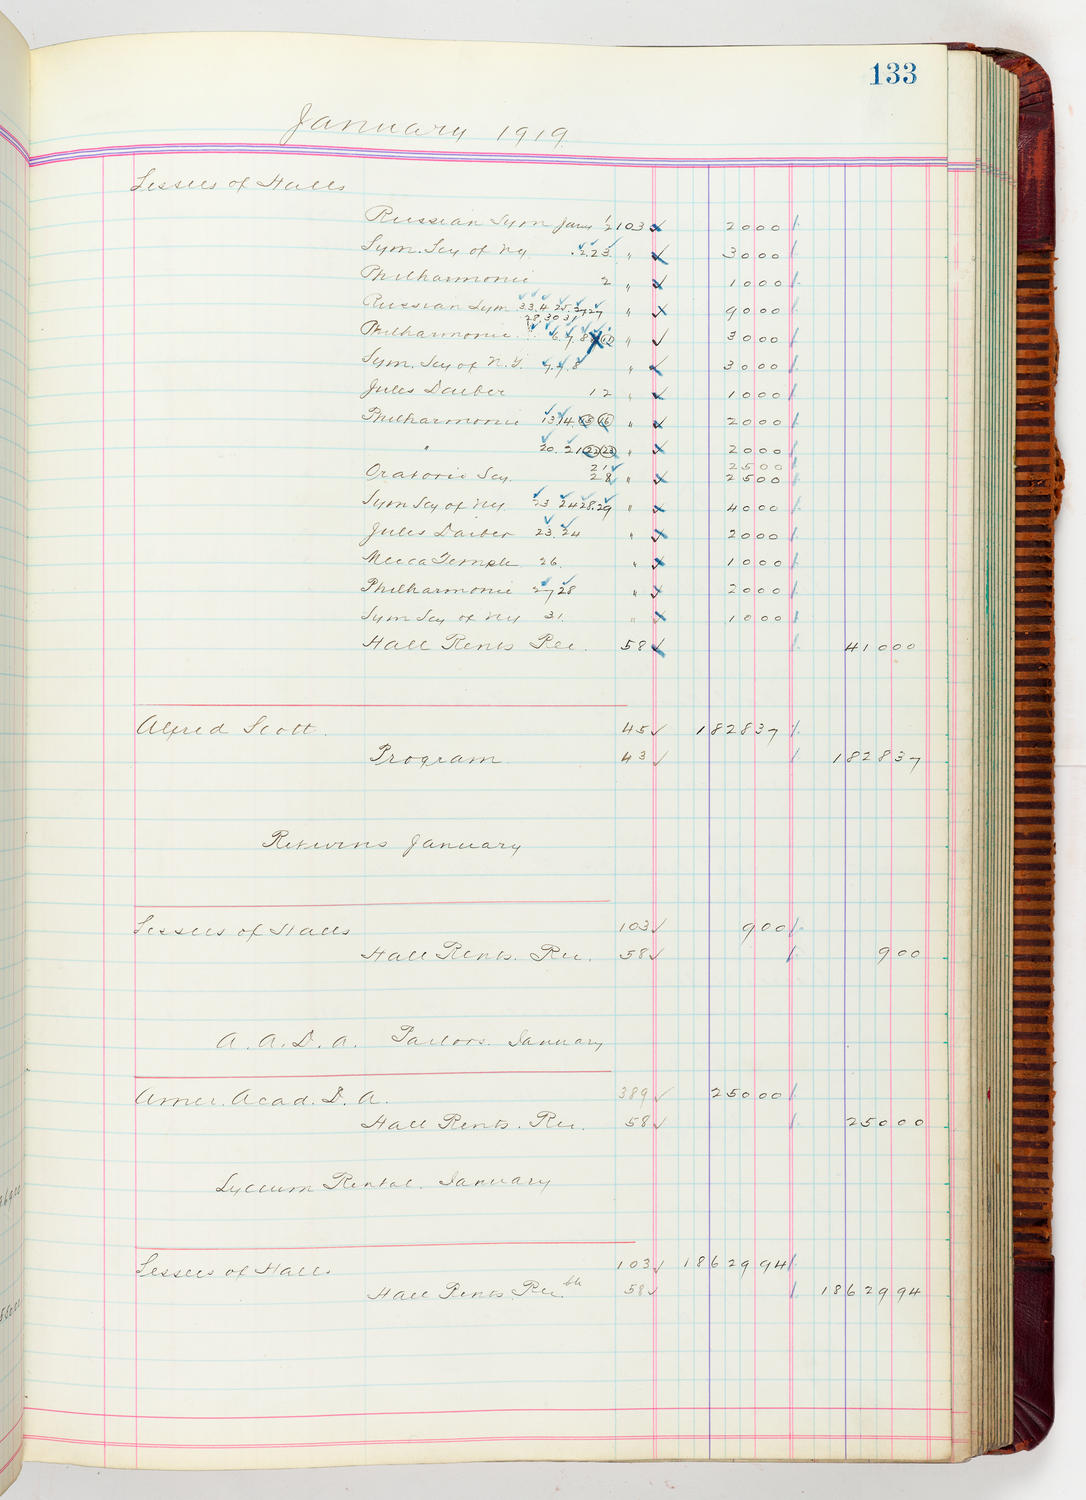 133
January 1919
Lessees of Halls
Russian Sym Jany 1/2 103 2000
Sym. Scy of Ny 2.23. " 3000
Philharmonic 2 " 1000
Russian Sym 3 3.4 25. 27 27 " 9000
28.30 31
Philharmonic 6.7.8 12 " 3000
Sym. Scy of N.Y. 8 " 3000
Jules Daiber 12 " 1000
Philharmonic 13 14. 15 16 " 2000
" 20. 21 22 23 " 2000
21 2500
Oratorio Scy. 28 " 2500
Sym Scy of Ny. 23 24 28.29 " 4000
Jules Daiber 23. 24 " 2000
Mecca Temple 26. " 1000
Philharmonic 27 28 " 2000
Sym Scy of Ny 31. " 1000
Hall Rents Rec. 58 41000
Alfred Scott. 45 182837
Program 43 182837
Returns January
Lessees of Halls 103 900
Hall Rents. Rec. 58 900
A. A. D. A. Parlors. January
Amer. Acad. D. A. 389 25000
Hall Rents. Rec. 58 25000
Lyceum Rental. January
Lessees of Halls 103 1862994
Hall Rents. Rec. 58 1862994